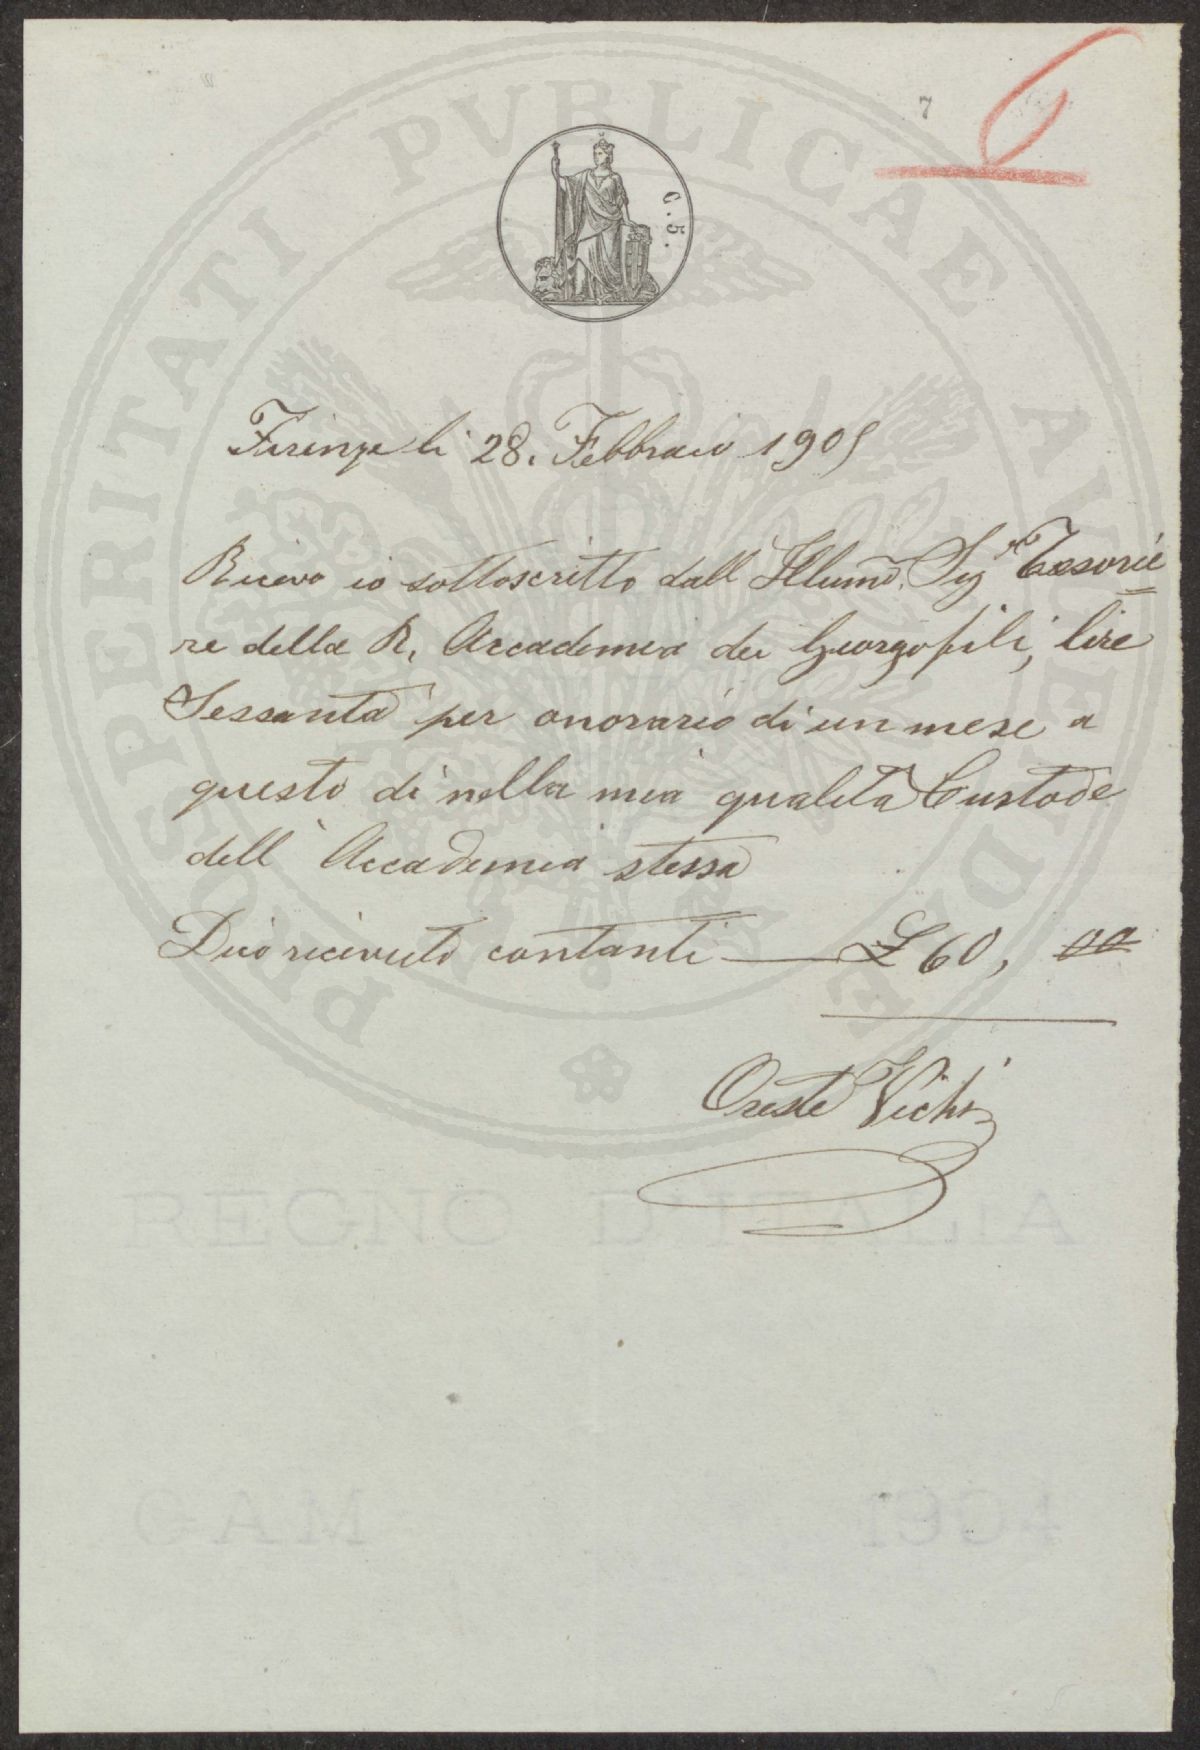 7
6
C. 5.
PROSPERITATI PVBLICAE AVGENDAE
Firenze li 28. Febbraio 1905
Ricevo io sottoscritto dall Illumo. Sigre Tesorie
re della R. Accademia dei Georgofili, lire
Sessanta per onorario di un mese a
questo dì nella mia qualità Custode
dell' Accademia stessa
Dico ricevuto contanti — £ 60, 00
Oreste Vichi
REGNO D'ITALIA